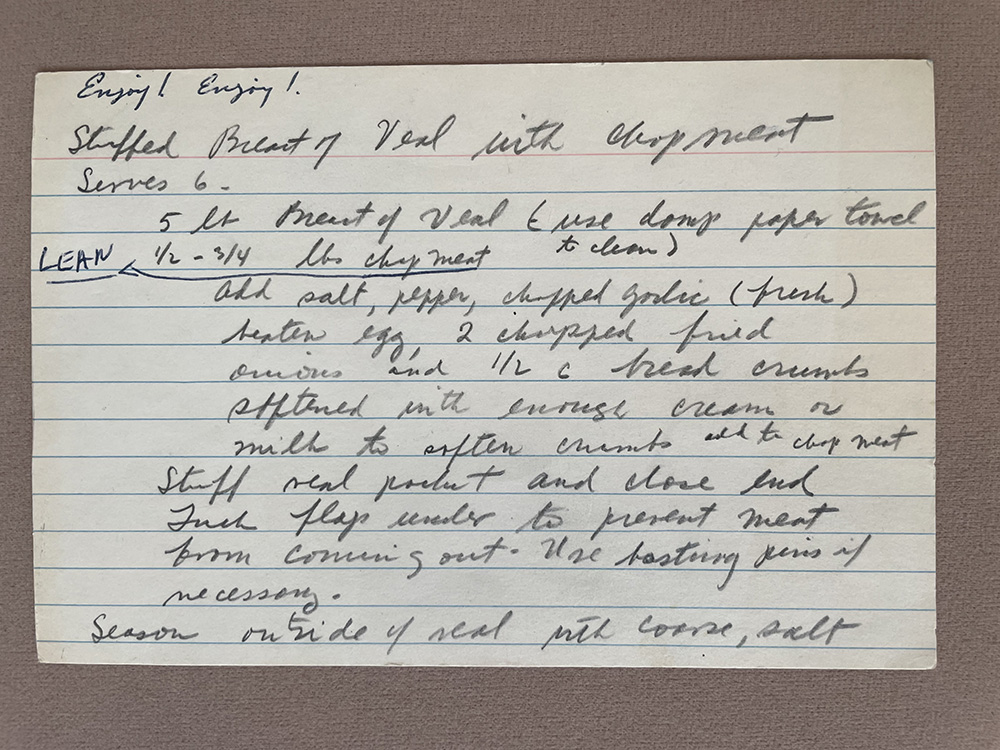 Enjoy! Enjoy!
Stuffed Breast of Veal with chop meat
Serves 6 -
5 lb Breast of Veal (use damp paper towel
to clean)
LEAN 1/2 - 3/4 lbs chop meat
add salt, pepper, chopped garlic (fresh)
beaten egg, 2 chopped fried
onions and 1/2 c bread crumbs
softened with enough cream or
milk to soften crumbs add to chop meat
Stuff veal pocket and close end
Tuck flap under to prevent meat
from coming out. Use basting pins if
necessary.
Season outside of veal with coarse, salt